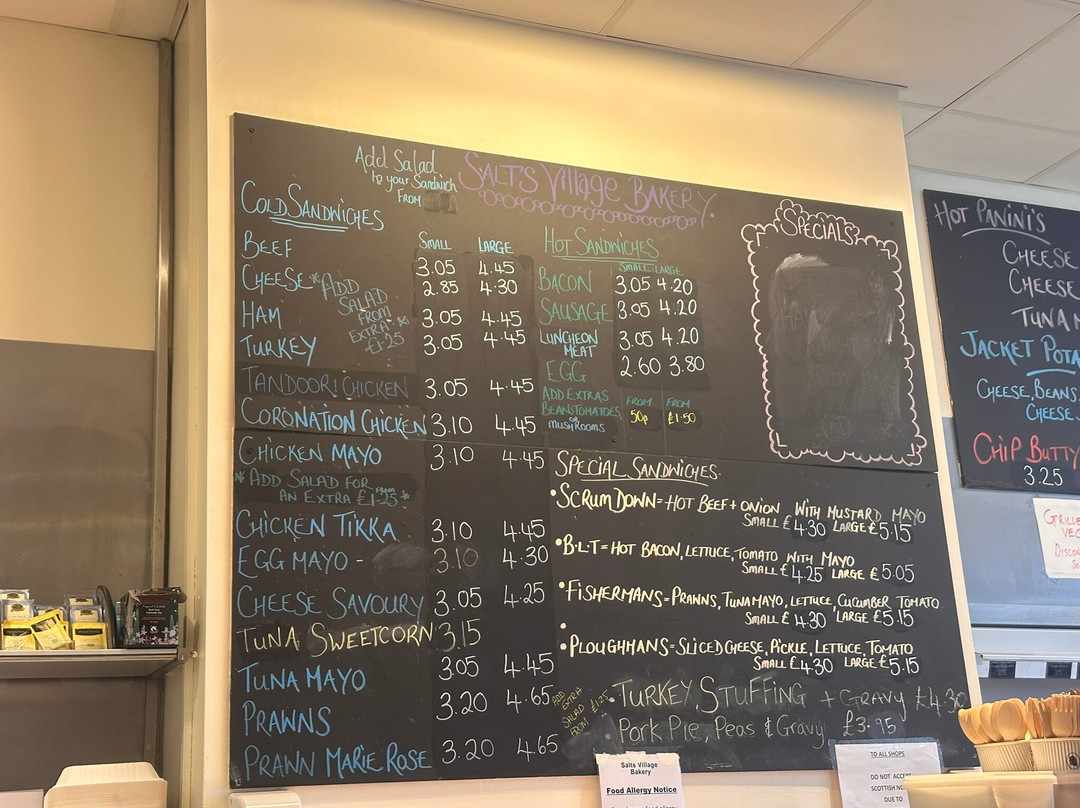 Add Salad
to your Sandwich
FROM
SALT'S Village BAKERY.
COLD SANDWICHES
SMALL LARGE
BEEF 3.05 4.45
CHEESE 2.85 4.30
*ADD
SALAD
FROM
EXTRA *
£1.25
HAM 3.05 4.45
TURKEY 3.05 4.45
TANDOORI CHICKEN 3.05 4.45
CORONATION CHICKEN 3.10 4.45
CHICKEN MAYO 3.10 4.45
*ADD SALAD FOR
AN EXTRA FROM £1.25 *
CHICKEN TIKKA 3.10 4.45
EGG MAYO - 3.10 4.30
CHEESE SAVOURY 3.05 4.25
TUNA SWEETCORN 3.15
TUNA MAYO 3.05 4.45
PRAWNS 3.20 4.65
PRAWN MARIE ROSE 3.20 4.65
HOT SANDWICHES
SMALL LARGE
BACON 3.05 4.20
SAUSAGE 3.05 4.20
LUNCHEON
MEAT 3.05 4.20
EGG 2.60 3.80
ADD EXTRAS FROM FROM
BEANS TOMATOES 50p £1.50
OR
MUSHROOMS
SPECIALS
SPECIAL SANDWICHES
• SCRUM DOWN = HOT BEEF + ONION WITH MUSTARD MAYO
SMALL £4.30 LARGE £5.15
• B.L.T = HOT BACON, LETTUCE, TOMATO WITH MAYO
SMALL £4.25 LARGE £5.05
• FISHERMANS = PRAWNS, TUNA MAYO, LETTUCE, CUCUMBER TOMATO
SMALL £4.30 LARGE £5.15
• PLOUGHMANS = SLICED CHEESE, PICKLE, LETTUCE, TOMATO
SMALL £4.30 LARGE £5.15
ADD
EXTRA
SALAD
FROM £1.25
• TURKEY, STUFFING + GRAVY £4.30
• Pork Pie, Peas & Gravy £3.95
HOT PANINI'S
CHEESE
CHEESE
TUNA
JACKET POTA
CHEESE, BEANS
CHEESE
CHIP BUTTY
3.25
Salts Village
Bakery
Food Allergy Notice
TO ALL SHOPS
DO NOT ACCEPT
SCOTTISH NO
DUE TO